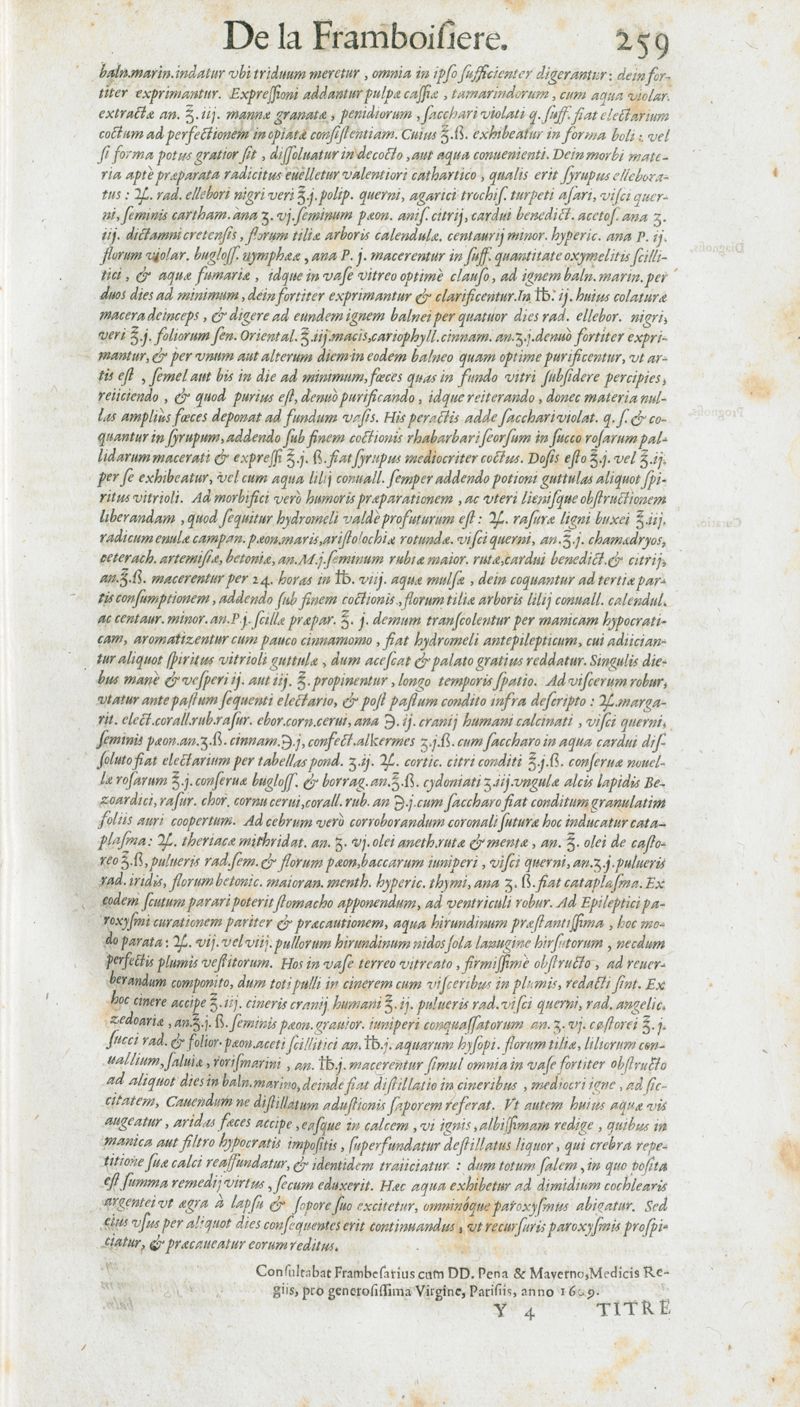 De la Framboisiere. 259
baln.marin.indatur vbi triduum meretur, omnia in ipso sufficienter digerantur: dein for-
titer exprimantur. Expressioni addantur pulpæ cassiæ, tamarindorum, cum aqua violar.
extractæ an. ℥. iij. mannæ granatæ, penidiorum, sacchari violati q. suff. fiat electarium
coctum ad perfectionem in opiatæ consistentiam. Cuius ℥.ß. exhibeatur in forma boli: vel
si forma potus gratior sit, dissoluatur in decocto, aut aqua conuenienti. Dein morbi mate-
ria aptè præparata radicitus euelletur valentiori cathartico, qualis erit syrupus ellebora-
tus: ℞. rad. ellebori nigri veri ℥.j. polip. querni, agarici trochis. turpeti asari, visci quer-
ni, seminis cartham. ana ʒ. vj. seminum pæon. anis. citrij, cardui benedict. acetos. ana ʒ.
iij. dictamni cretensis, florum tiliæ arboris calendulæ. centaurij minor. hyperic. ana P. ij.
florum violar. bugloss. nymphææ, ana P. j. macerentur in suff. quantitate oxymelitis scilli-
tici, & aquæ fumariæ, idque in vase vitreo optimè clauso, ad ignem baln. marin. per
duos dies ad minimum, dein fortiter exprimantur & clarificentur. In ℔. ij. huius colaturæ
macera deinceps, & digere ad eundem ignem balnei per quatuor dies rad. ellebor. nigri,
veri ℥.j. foliorum sen. Oriental. ℥.iij.macis, cariophyll.cinnam. an.ʒ.j.denuò fortiter expri-
mantur, & per vnum aut alterum diem in eodem balneo quam optime purificentur, vt ar-
tis est, semel aut bis in die ad minimum, fæces quas in fundo vitri subsidere percipies,
reiiciendo, & quod purius est, denuò purificando, idque reiterando, donec materia nul-
las ampliùs fæces deponat ad fundum vasis. His peractis adde sacchari violat. q. s. & co-
quantur in syrupum, addendo sub finem coctionis rhabarbari seorsum in succo rosarum pal-
lidarum macerati & expressi ℥.j. ß. fiat syrupus mediocriter coctus. Dosis esto ℥.j. vel ℥.ij.
per se exhibeatur, vel cum aqua lilij conuall. semper addendo potioni guttulas aliquot spi-
ritus vitrioli. Ad morbifici verò humoris præparationem, ac vteri lienisque obstructionem
liberandam, quod sequitur hydromeli valdè profuturum est: ℞. rasuræ ligni buxei ℥.iij.
radicum enulæ campan. pæon.maris, aristolochiæ rotundæ. visci querni, an.℥.j. chamædryos,
ceterach. artemisiæ, betoniæ, an.M.j.seminum rubiæ maior. rutæ, cardui benedict.& citrij,
an.℥.ß. macerentur per 24. horas in ℔. viij. aquæ mulsæ, dein coquantur ad tertiæ par-
tis consumptionem, addendo sub finem coctionis, florum tiliæ arboris lilij conuall. calendul.
ac centaur. minor. an.P.j. scillæ præpar. ℥. j. demum transcolentur per manicam hypocrati-
cam, aromatizentur cum pauco cinnamomo, fiat hydromeli antepilepticum, cui adiician-
tur aliquot spiritus vitrioli guttulæ, dum acescat & palato gratius reddatur. Singulis die-
bus manè & vesperi ij. aut iij. ℥. propinentur, longo temporis spatio. Ad viscerum robur,
vtatur ante pastum sequenti electario, & post pastum condito infra descripto: ℞.marga-
rit. elect.corall.rub.rasur. ebor.corn.cerui, ana ℈. ij. cranij humani calcinati, visci querni,
seminis pæon.an.ʒ.ß. cinnam.℈.j, confect.alkermes ʒ.j.ß. cum saccharo in aqua cardui dis-
soluto fiat electarium per tabellas pond. ʒ.ij. ℞. cortic. citri conditi ℥.j.ß. conseruæ nouel-
læ rosarum ℥.j. conseruæ bugloss. & borrag. an.℥.ß. cydoniati ʒ.iij.vngulæ alcis lapidis Be-
zoardici, rasur. ebor. cornu cerui, corall. rub. an ℈.j.cum saccharo fiat conditum granulatim
foliis auri coopertum. Ad cebrum verò corroborandum coronali suturæ hoc inducatur cata-
plasma: ℞. theriacæ mithridat. an. ʒ. vj. olei aneth.rutæ & mentæ, an. ℥. olei de casto-
reo ℥.ß, pulueris rad.sem.& florum pæon, baccarum iuniperi, visci querni, an.ʒ.j.pulueris
rad. iridis, florum betonic. maioran. menth. hyperic. thymi, ana ʒ. ß. fiat cataplasma. Ex
eodem scutum parari poterit stomacho apponendum, ad ventriculi robur. Ad Epileptici pa-
roxysmi curationem pariter & præcautionem, aqua hirundinum præstantissima, hoc mo-
do parata: ℞. vij. vel viij. pullorum hirundinum nidos sola lanugine hirsutorum, necdum
perfectis plumis vestitorum. Hos in vase terreo vitreato, firmissimè obstructo, ad reuer-
berandum componito, dum toti pulli in cinerem cum visceribus in plumis, redacti sint. Ex
hoc cinere accipe ℥.iij. cineris cranij humani ℥.ij. pulueris rad.visci querni, rad. angelic.
zedoariæ, an.℥.j. ß. seminis pæon. grauior. iuniperi conquassatorum an. ʒ. vj. castorei ℥. j.
succi rad. & folior. pæon.aceti scillitici an. ℔.j. aquarum hysopi. florum tiliæ, liliorum con-
uallium, saluiæ, rorismarini, an. ℔.j. macerentur simul omnia in vase fortiter obstructo
ad aliquot dies in baln.marino, deinde fiat distillatio in cineribus, mediocri igne, ad sic-
citatem, Cauendum ne distillatum adustionis saporem referat. Vt autem huius aquæ vis
augeatur, aridas fæces accipe, easque in calcem, vi ignis, albissimam redige, quibus in
manica aut filtro hypocratis impositis, superfundatur destillatus liquor, qui crebra repe-
titione suæ calci reaffundatur, & identidem traiiciatur: dum totum salem, in quo posita
est summa remedij virtus, secum eduxerit. Hæc aqua exhibetur ad dimidium cochlearis
argentei vt ægra à lapsu & sopore suo excitetur, omninóque paroxysmus abigatur. Sed
eius vsus per aliquot dies consequentes erit continuandus, vt recursuris paroxysmis prospi-
ciatur, & præcaueatur eorum reditus.
Consultabat Frambesarius cum DD. Pena & Mayerno, Medicis Re-
giis, pro generosissima Virgine, Parisiis, anno 1609.
Y 4 TITRE